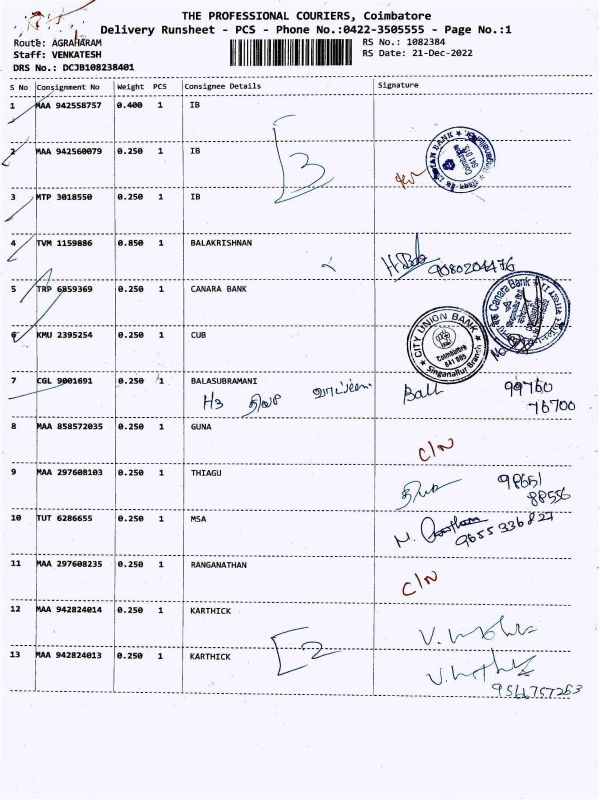 THE PROFESSIONAL COURIERS, Coimbatore
Delivery Runsheet - PCS - Phone No.:0422-3505555 - Page No.:1
Route: AGRAHARAM
Staff: VENKATESH
DRS No.: DCJB108238401
RS No.: 1082384
RS Date: 21-Dec-2022
S No Consignment No Weight PCS Consignee Details Signature
1 MAA 942558757 0.400 1 IB
2 MAA 942560079 0.250 1 IB
3
3 MTP 3018550 0.250 1 IB
4 TVM 1159886 0.850 1 BALAKRISHNAN
9080204476
5 TRP 6859369 0.250 1 CANARA BANK
Canara Bank
6 KMU 2395254 0.250 1 CUB
CITY UNION BANK
Coimbatore
641 005
Singanallur Branch
7 CGL 9001691 0.250 1 BALASUBRAMANI
H3
99760
76700
8 MAA 858572035 0.250 1 GUNA
C/N
9 MAA 297608103 0.250 1 THIAGU
98651
88556
10 TUT 6286655 0.250 1 MSA
9655336827
11 MAA 297608235 0.250 1 RANGANATHAN
C/N
12 MAA 942824014 0.250 1 KARTHICK
2
13 MAA 942824013 0.250 1 KARTHICK